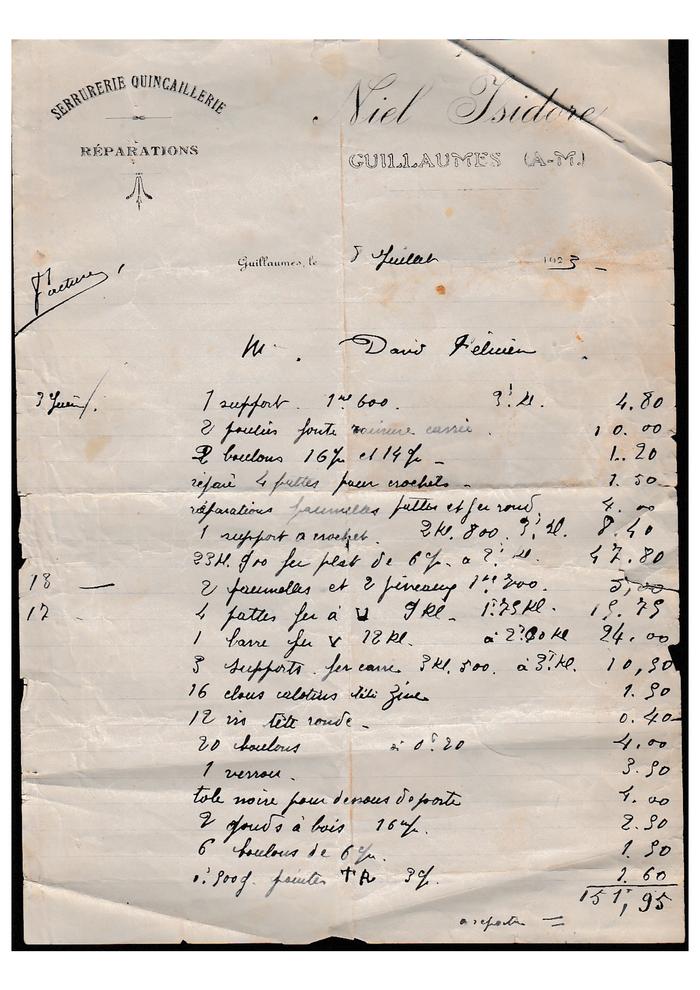 SERRURERIE QUINCAILLERIE
RÉPARATIONS
Niel Isidore
GUILLAUMES (A-M.)
Guillaumes, le 8 Juillet 1923
Facture
M. David Félicien
3 Juin 1 support. 1k600. 3f. kl. 4.80
2 poulies fonte rainure carrée 10.00
2 boulons 16 et 14 1.20
réparé 4 pattes pour crochets 1.50
réparations paumelles pattes et fer rond 4.00
1 support a crochet. 2kl.800. 3f. kl. 8.40
23kl.900 fer plat de 6 a 2f. kl. 47.80
18 — 2 paumelles et 2 300. 5,00
17 4 pattes fer à U 9kl. 1f.75 kl. 15.75
1 barre fer V 12 kl. à 2f.00 kl 24.00
3 supports fer carre 3kl.500. à 3f.kl. 10,50
16 clous calotins zinc 1.50
12 vis tête ronde 0.40
20 boulons à 0f.20 4.00
1 verrou. 3.50
tole noire pour dessous de porte 4.00
2 gonds à bois 16 2.50
6 boulons de 6 1.50
0k.500g. pointes TR 1.60
151f,95
a reporter =